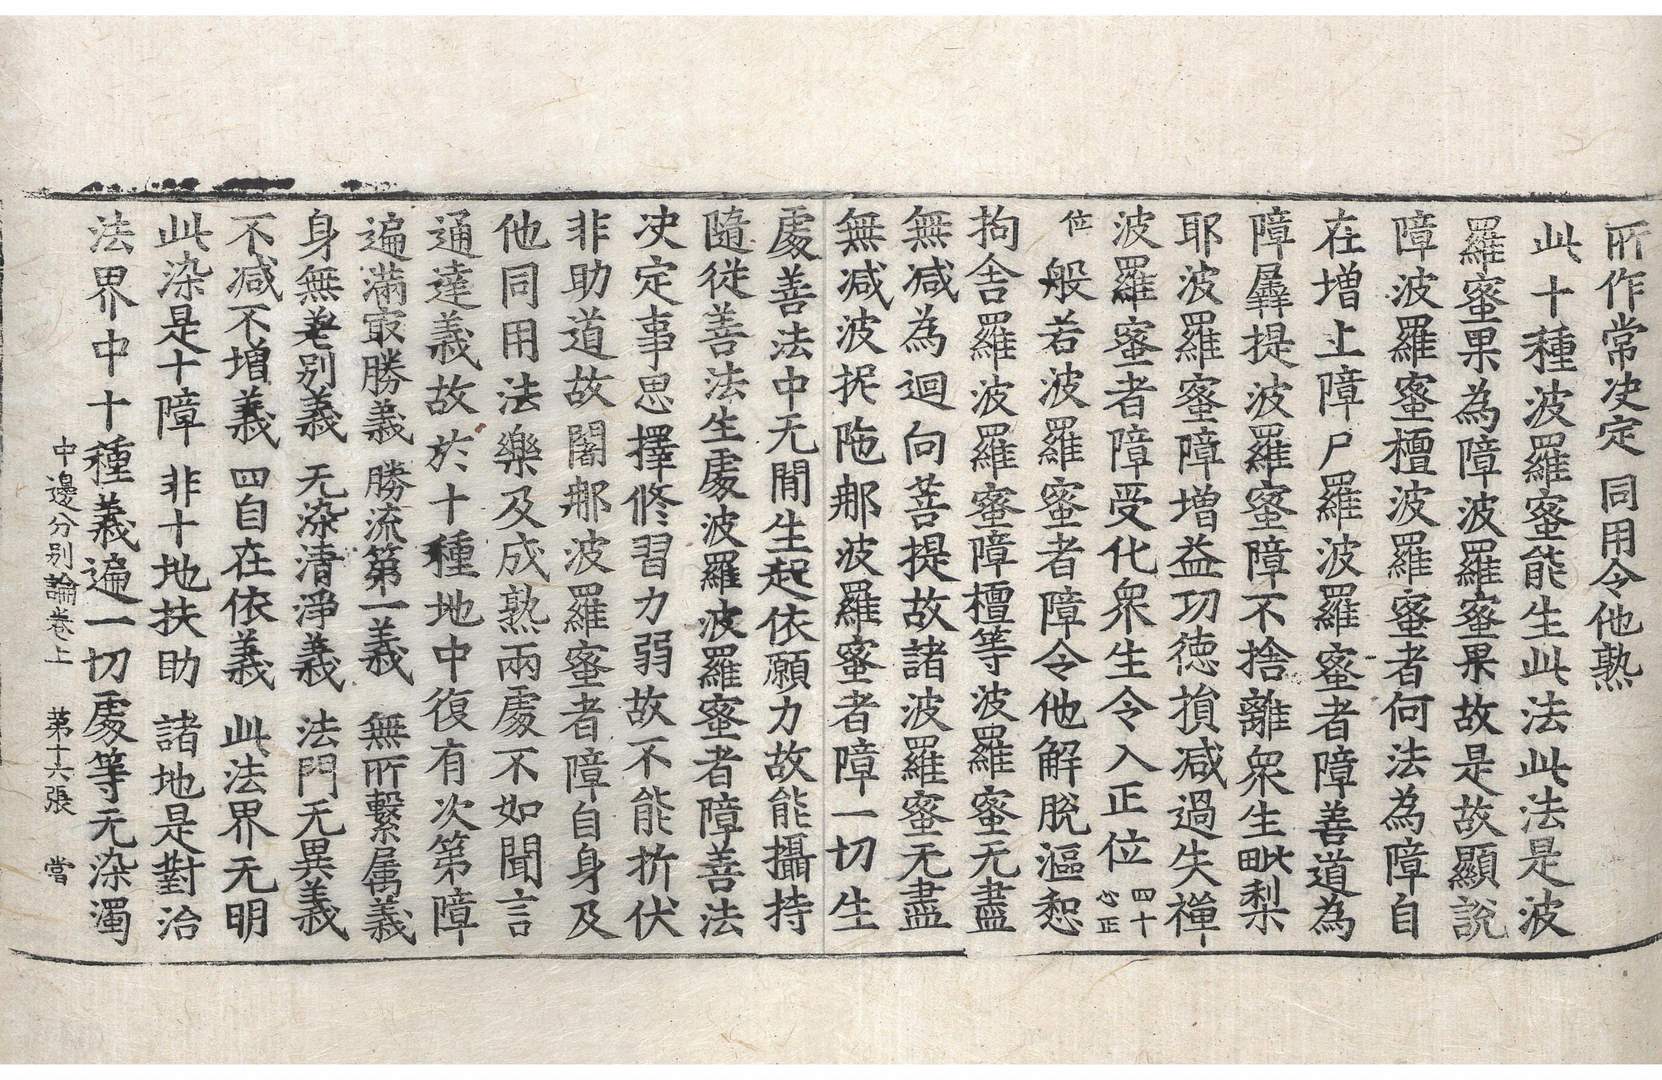 所作常决定 同用令他熟
此十種波羅蜜能生此法此法是波
羅蜜果為障波羅蜜果故是故顯說
障波羅蜜檀波羅蜜者何法為障自
在增上障尸羅波羅蜜者障善道為
障羼提波羅蜜障不捨離眾生毗梨
耶波羅蜜障增益功德損减過失禪
波羅蜜者障受化眾生令入正位四十心正
位般若波羅蜜者障令他解脫漚惒
拘舍羅波羅蜜障檀等波羅蜜无盡
無减為迴向菩提故諸波羅蜜无盡
無减波抳陁那波羅蜜者障一切生
處善法中无間生起依願力故能攝持
隨從善法生處波羅波羅蜜者障善法
决定事思擇修習力弱故不能折伏
非助道故闍那波羅蜜者障自身及
他同用法樂及成熟兩處不如聞言
通達義故於十種地中復有次第障
遍滿㝡勝義 勝流第一義 無所繫属義
身無差别義 无染清淨義 法門无異義
不减不增義 四自在依義 此法界无明
此染是十障 非十地扶助 諸地是對治
法界中十種義遍一切處等无染濁
中邊分别論卷上 第十六張 當